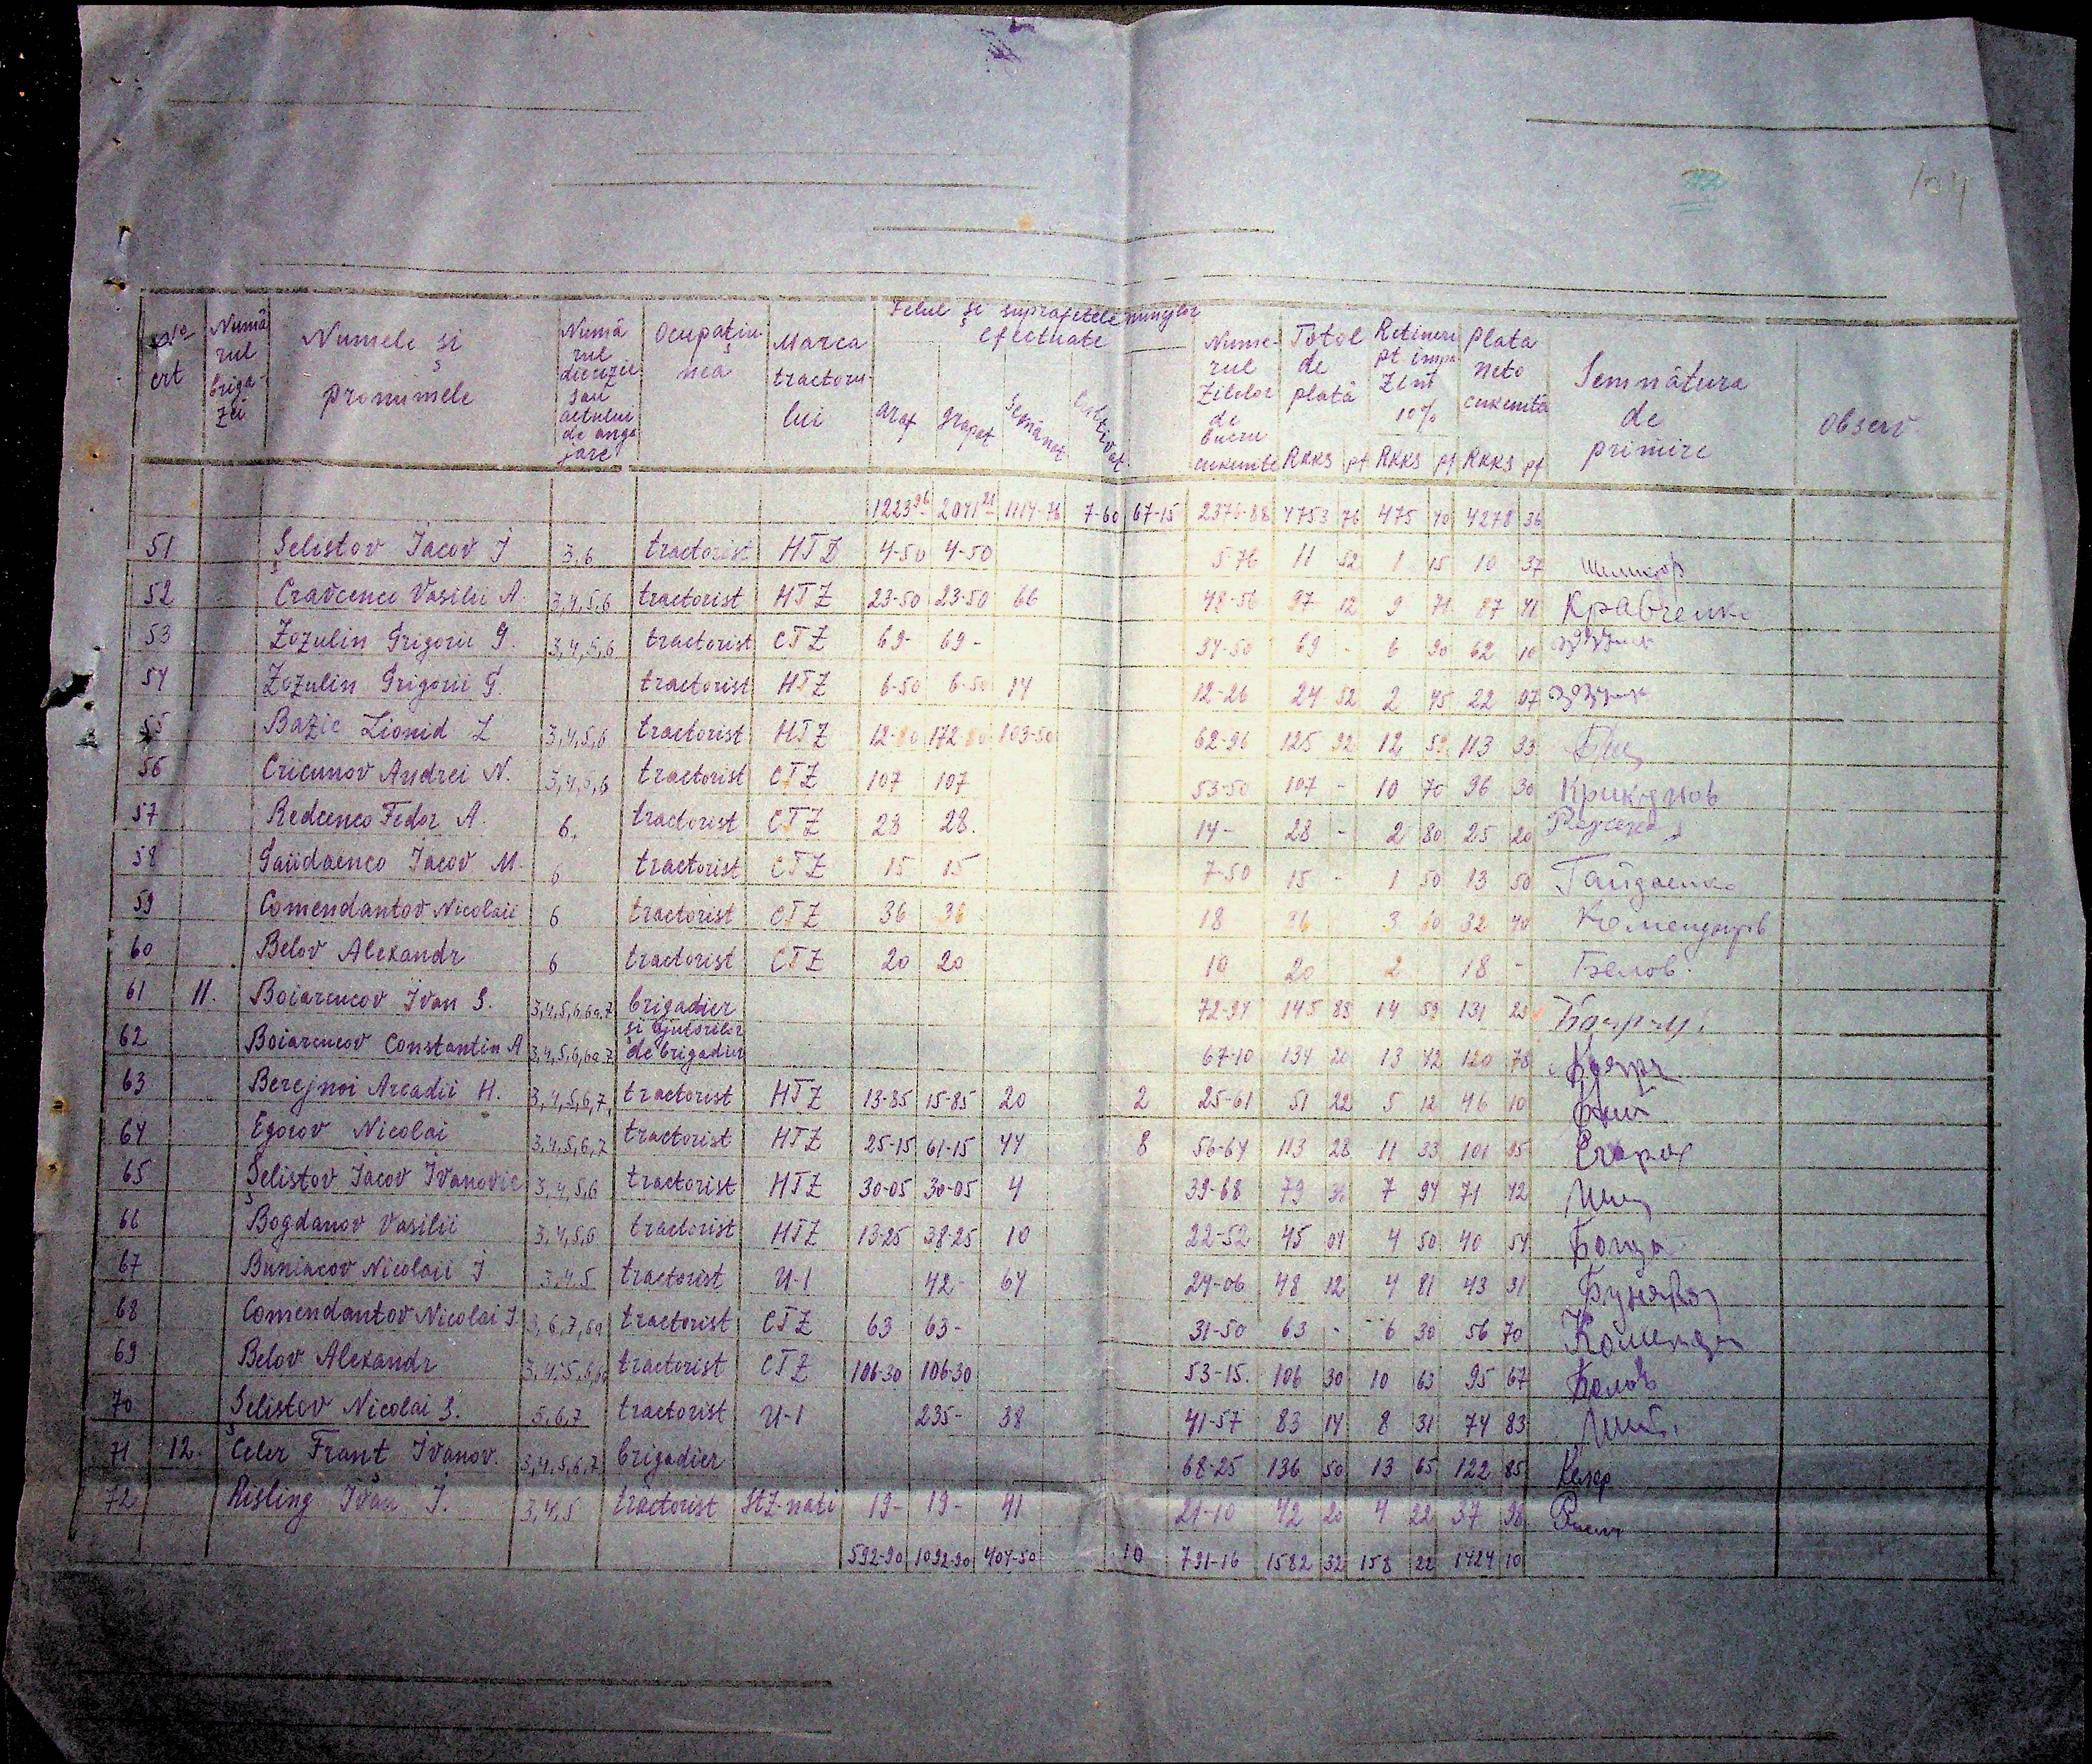 104
No crt | Numărul brigăzii | Numele și pronumele | Numărul deciziei sau actului de angajare | Ocupațiunea | Marca tractorului | Felul și suprafețele muncilor efectuate | arat | grapat | semănat | cultivat | Numerul Zilelor de lucru cuvenite | Totol de plată RKKS pf | Rețineri pt impozint 10% RKKS pf | Plata neto cuvenită RKKS pf | Semnătura de primire | Observ
1223 96 | 2041 21 | 1114-76 | 7-60 | 67-15 | 2376-88 | 4753 76 | 475 40 | 4278 36
51 | Șelistov Iacov I | 3,6 | tractorist | HTZ | 4-50 | 4-50 | 5-76 | 11 52 | 1 15 | 10 37
52 | Cravcenco Vasilii A. | 3,4,5,6 | tractorist | HTZ | 23-50 | 23-50 | 66 | 48-56 | 97 12 | 9 71 | 87 41 | Кравченко
53 | Zozulin Grigorii G. | 3,4,5,6 | tractorist | CTZ | 69- | 69- | 34-50 | 69 - | 6 90 | 62 10
54 | Zozulin Grigorii G. | tractorist | HTZ | 6-50 | 6-50 | 14 | 12-26 | 24 52 | 2 45 | 22 07
55 | Bazic Lionid L | 3,4,5,6 | tractorist | HTZ | 12-80 | 172-80 | 103-50 | 62-96 | 125 92 | 12 59 | 113 33
56 | Cricunov Andrei N. | 3,4,5,6 | tractorist | CTZ | 107 | 107 | 53-50 | 107 - | 10 70 | 96 30 | Крикунов
57 | Redcenco Fedor A. | 6. | tractorist | CTZ | 28 | 28. | 14- | 28 - | 2 80 | 25 20
58 | Gaiidaenco Iacov M. | 6 | tractorist | CTZ | 15 | 15 | 7-50 | 15 - | 1 50 | 13 50 | Гайдаенко
59 | Comendantov Nicolaii | 6 | tractorist | CTZ | 36 | 36 | 18 | 36 | 3 60 | 32 40
60 | Belov Alexandr | 6 | tractorist | CTZ | 20 | 20 | 10 | 20 | 2 | 18 - | Белов.
61 | 11. | Boiarcucov Ivan S. | 3,4,5,6,6a,7 | brigadier | 72-94 | 145 88 | 14 59 | 131 29
62 | Boiarcucov Constantin A | 3,4,5,6,6a,7 | și ajutorilor de brigadier | 67-10 | 134 20 | 13 42 | 120 78
63 | Berejnoi Arcadii H. | 3,4,5,6,7, | tractorist | HTZ | 13-85 | 15-85 | 20 | 2 | 25-61 | 51 22 | 5 12 | 46 10
64 | Egorov Nicolai | 3,4,5,6,7 | tractorist | HTZ | 25-15 | 61-15 | 44 | 8 | 56-64 | 113 28 | 11 33 | 101 95
65 | Șelistov Iacov Ivanovic | 3,4,5,6 | tractorist | HTZ | 30-05 | 30-05 | 4 | 39-68 | 79 36 | 7 94 | 71 42
66 | Bogdanov Vasilii | 3,4,5,6 | tractorist | HTZ | 13-25 | 38-25 | 10 | 22-52 | 45 04 | 4 50 | 40 54
67 | Buniacov Nicolaii I | 3,4,5 | tractorist | U-1 | 42- | 64 | 24-06 | 48 12 | 4 81 | 43 31
68 | Comendantov Nicolai I. | 3,6,7,6a | tractorist | CTZ | 63 | 63- | 31-50 | 63 - | 6 30 | 56 70
69 | Belov Alexandr | 3,4,5,6,6a | tractorist | CTZ | 106-30 | 106-30 | 53-15. | 106 30 | 10 63 | 95 67
70 | Șelistov Nicolai S. | 5,6,7 | tractorist | U-1 | 235- | 38 | 41-57 | 83 14 | 8 31 | 74 83
71 | 12. | Celer Frant Ivanov. | 3,4,5,6,7 | brigadier | 68-25 | 136 50 | 13 65 | 122 85 | Келер
72 | Risling Ivan I. | 3,4,5 | tractorist | StZ-nati | 19- | 19- | 41 | 21-10 | 42 20 | 4 22 | 37 98
592-90 | 1092-90 | 404-50 | 10 | 791-16 | 1582 32 | 158 22 | 1424 10